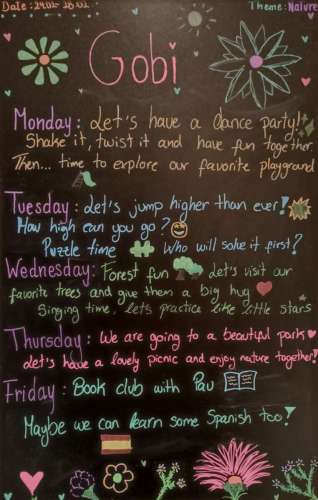 Date: 24.02-28.02
Theme: Nature
Gobi
Monday: Let's have a dance party!
Shake it, twist it and have fun together.
Then... time to explore our favorite playground
Tuesday: Let's jump higher than ever!
How high can you go?
Puzzle time Who will solve it first?
Wednesday: Forest fun Let's visit our
favorite trees and give them a big hug
Singing time, let's practice like little stars
Thursday: We are going to a beautiful park
Let's have a lovely picnic and enjoy nature together!
Friday: Book club with Pau
Maybe we can learn some Spanish too!